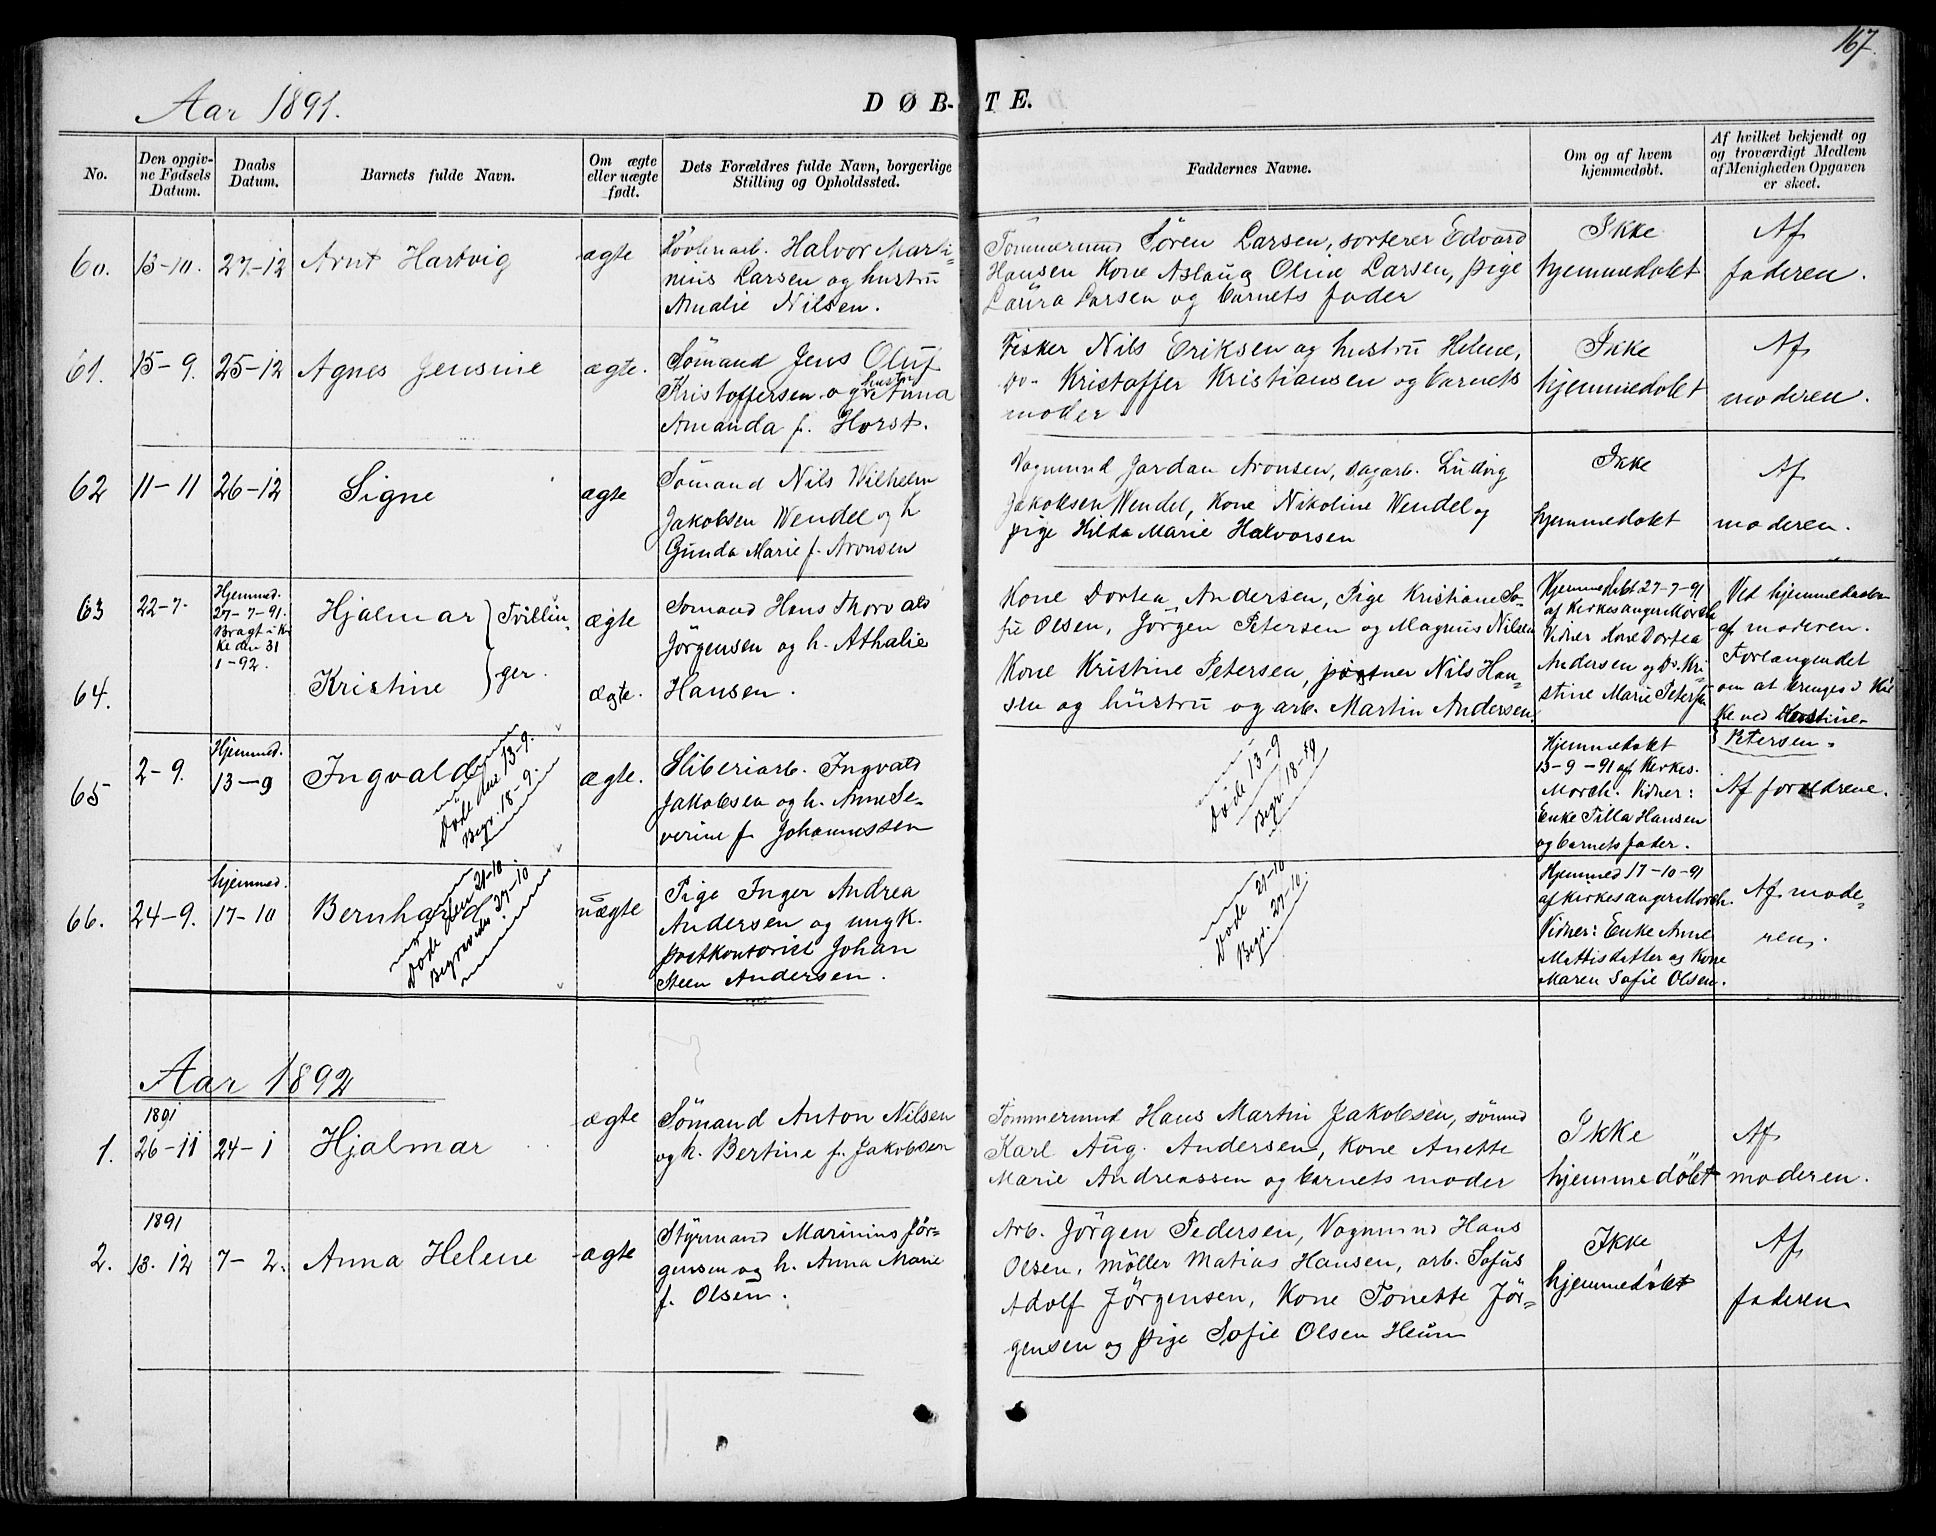 167.
Aar 1891.
DØB-TE.
No.
Den opgiv-
ne Fødsels
Datum.
Daabs
Datum.
Barnets fulde Navn.
Om ægte
eller uægte
født.
Dets Forældres fulde Navn, borgerlige
Stilling og Opholdssted.
Faddernes Navne.
Om og af hvem
hjemmedøbt.
Af hvilket bekjendt og
og troværdigt Medlem
af Menigheden Opgaven
er skeet.
60. 13-10. 27-12 Arnt Hartvig ægte
Høvlenarb. Halvor Marti-
nius Larsen og hustru
Amalie Nilsen.
Tømmermand Søren Larsen, sorterer Edvard
Hansen Kone Aslaug Oline Larsen, pige
Laura Larsen og barnets fader
Ikke
hjemmedøbt
Af
faderen.
61. 15-9. 25-12 Agnes Jensine ægte.
Sømand Jens Oluf
Kristoffersen og hustru Anna
Amanda f. Horst.
Fisker Nils Eriksen og hustru Helene,
Do- Kristoffer Kristiansen og barnets
moder
Ikke
hjemmedøbt
Af
moderen.
62 11-11 26-12 Signe ægte
Sømand Nils Wilhelm
Jakobsen Wendel og h
Gunda Marie f. Aronsen
Vognmand Jordan Aronsen, sagarb. Ludvig
Jakobsen Wendel, Kone Nikoline Wendel og
pige Hilda Marie Halvorsen
Ikke
hjemmedøbt
Af
moderen.
63 22-7. Hjemmed.
27-7-91.
Bragt i Kir
ke den 31
1-92.
Hjalmar } Tvillin-
64. Kristine } ger.
ægte
ægte.
Sømand Hans Thorvald
Jørgensen og h. Athalie
Hansen.
Kone Dortea Andersen, Pige Kristiane So-
fie Olsen, Jørgen Petersen og Magnus Nilsen
Kone Kristine Petersen, gartner Nils Han-
sen og hustru og arb. Martin Andersen.
Hjemmedøbt 27-7-91
af Kirkesanger Morch
Vidner Kone Dortea
Andersen og Do. Kri-
stine Marie Petersen
Ved hjemmedaaben
af moderen.
Forlangendet
om at bringes i Kir
ke ved Kristine
Petersen.
65 2-9. Hjemmed.
13-9 Ingvald ægte.
Døde den 13-9.
Begr. 18-9.
Sliberiarb. Ingvald
Jakobsen og h. Anne Se-
verine f. Johannessen
Døde 13-9
Begr. 18-9
Hjemmedøbt
13-9-91 af Kirkes.
Morch. Vidner:
Enke Tilla Hansen
og barnets fader.
Af forældrene.
66. 24-9. hjemmed.
17-10 Bernhard uægte
Døde den 21-10
Begravedes 27-10
Pige Inger Andrea
Andersen og ungk.
postkontorist Johan
Steen Andersen.
Døde 21-10
Begr. 27-10.
Hjemmed 17-10-91
af Kirkesanger Morch.
Vidner: Enke Anne
Mattisdatter og Kone
Maren Sofie Olsen.
Af mode-
ren.
Aar 1892
1. 1891
26-11 24-1 Hjalmar ægte
Sømand Anton Nilsen
og h. Bertine f. Jakobsen
Tømmermand Hans Martin Jakobsen, sømand
Karl Aug. Andersen, Kone Anette
Marie Andreassen og barnets moder
Ikke
hjemmedøbt
Af
moderen.
2. 1891
13.12 7-2. Anna Helene ægte
Styrmand Marinius Jør-
gensen og h. Anna Marie
f. Olsen.
Arb. Jørgen Pedersen, Vognmand Hans
Olsen, møller Matias Hansen, arb. Sofus
Adolf Jørgensen, Kone Tonette Jør-
gensen og pige Sofie Olsen Heum
Ikke
hjemmedøbt
Af
faderen